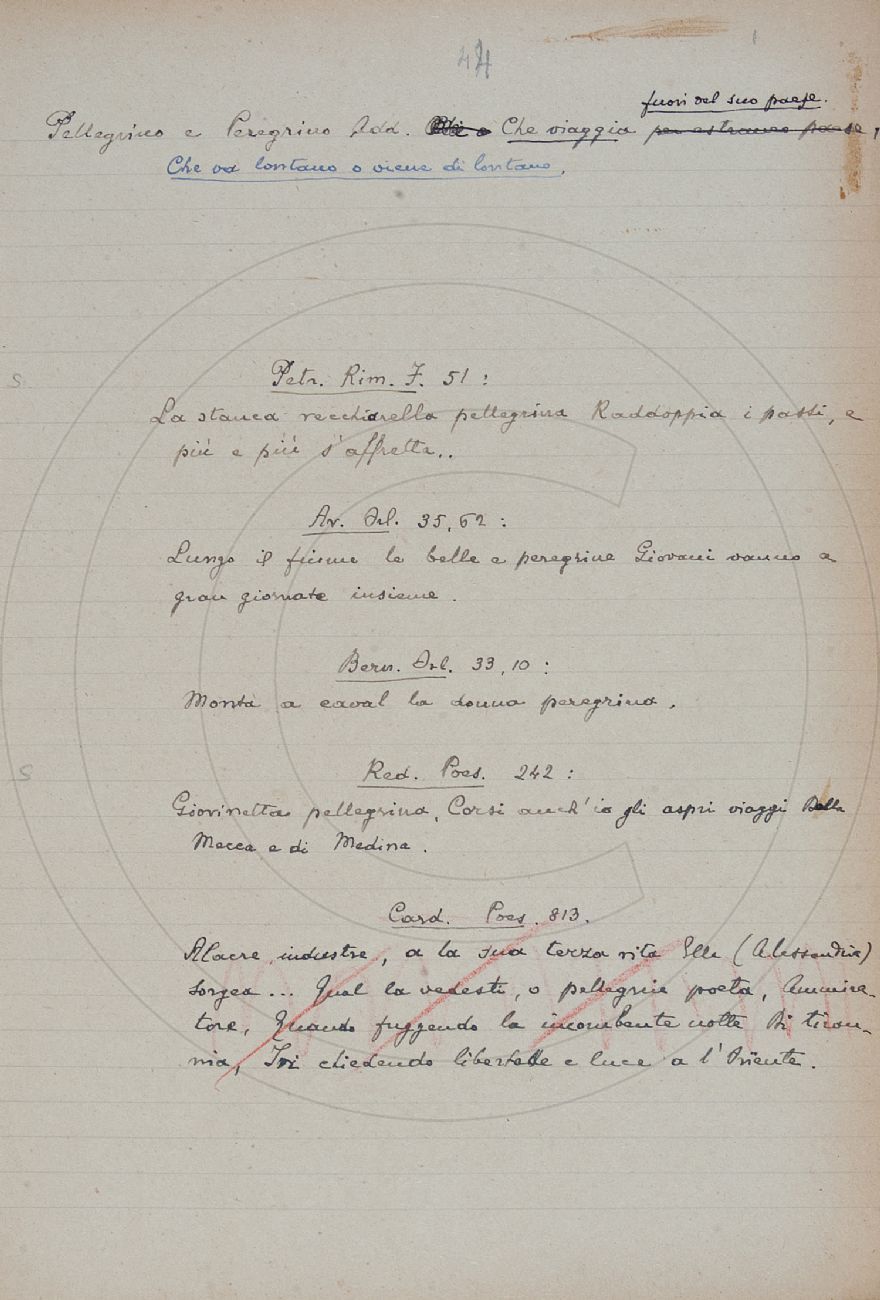 44
fuori del suo paese.
Pellegrino e Peregrino Add. Che viaggia per estraneo paese,
Che va lontano o viene di lontano.
Petr. Rim. F. 51 :
S
La stanca vecchiarella pellegrina Raddoppia i passi, e
più e più s'affretta..
Ar. Orl. 35, 62 :
Lungo il fiume le belle e peregrine Giovani vanno a
gran giornate insieme.
Bern. Orl. 33, 10 :
Monta a caval la donna peregrina.
Red. Poes. 242 :
S
Giovinetta pellegrina, Corsi anch'io gli aspri viaggi Della
Mecca e di Medina.
Card. Poes. 813.
Alacre, industre, a la sua terza vita Elle (Alessandria)
Sorgea ... Qual la vedesti, o pellegrin poeta, Ammira-
tore, Quando fuggendo la incombente notte Di tiran-
nia, Ivi chiedendo libertade e luce a l'Oriente.